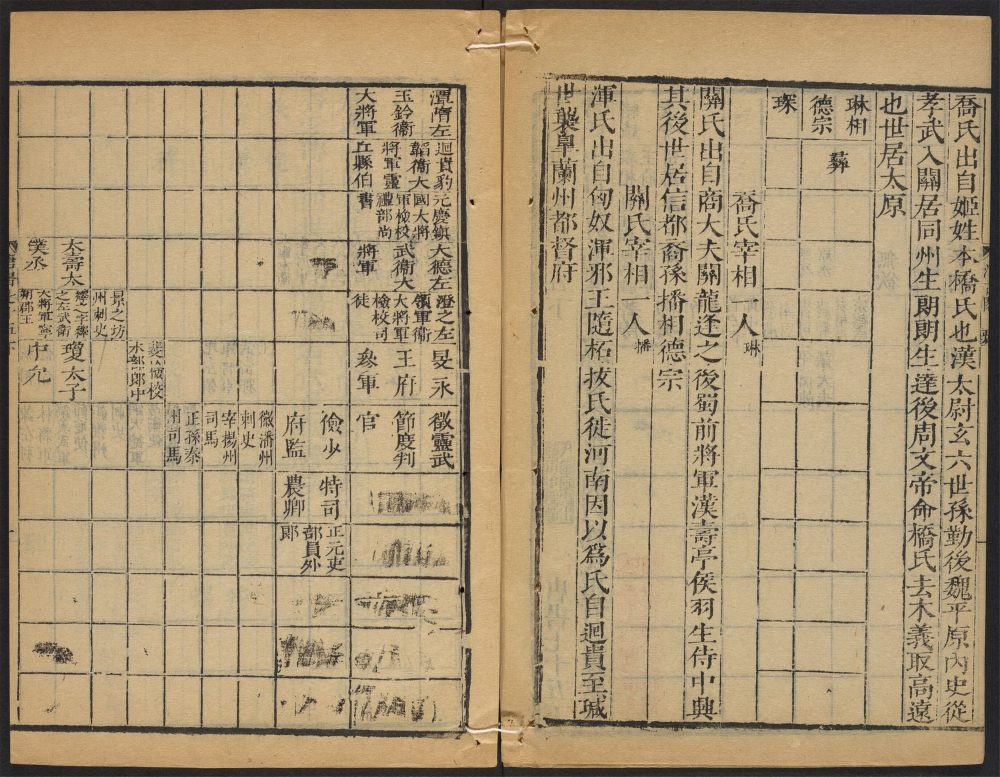 喬氏出自姬姓本橋氏也漢太尉玄六世孫勤後魏平原內史從
孝武入關居同州生朗朗生達後周文帝命橋氏去木義取高遠
也世居太原
琳相
德宗
彝
琛
喬氏宰相一人琳
關氏出自商大夫關龍逢之後蜀前將軍漢壽亭侯羽生侍中興
其後世居信都裔孫播相德宗
關氏宰相一人播
渾氏出自匈奴渾邪王隨柘拔氏徙河南因以爲氏自迴貴至瑊
世襲皐蘭州都督府
潭隋左
玉鈐衛
大將軍
迴貴豹
韜衛大
將軍靈
丘縣伯
元慶鎮
國大將
軍檢校
禮部尚
書
大德左
武衛大
將軍
澄之左
領軍衛
大將軍
檢校司
徒
旻永
王府
參軍
徵靈武
節度判
官
儉少
府監
特司
農卿
正元吏
部員外
郎
徵潘州
刺史
宰揚州
司馬
正孫泰
州司馬
景之坊
州刺史
本壽太
僕丞
之左武衛
大將軍寧
朔郡王
瓊太子
中允